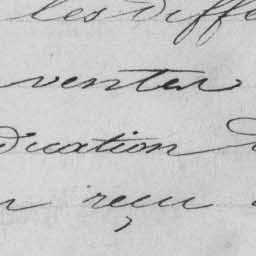 les diffé
ventes
dication
reçu